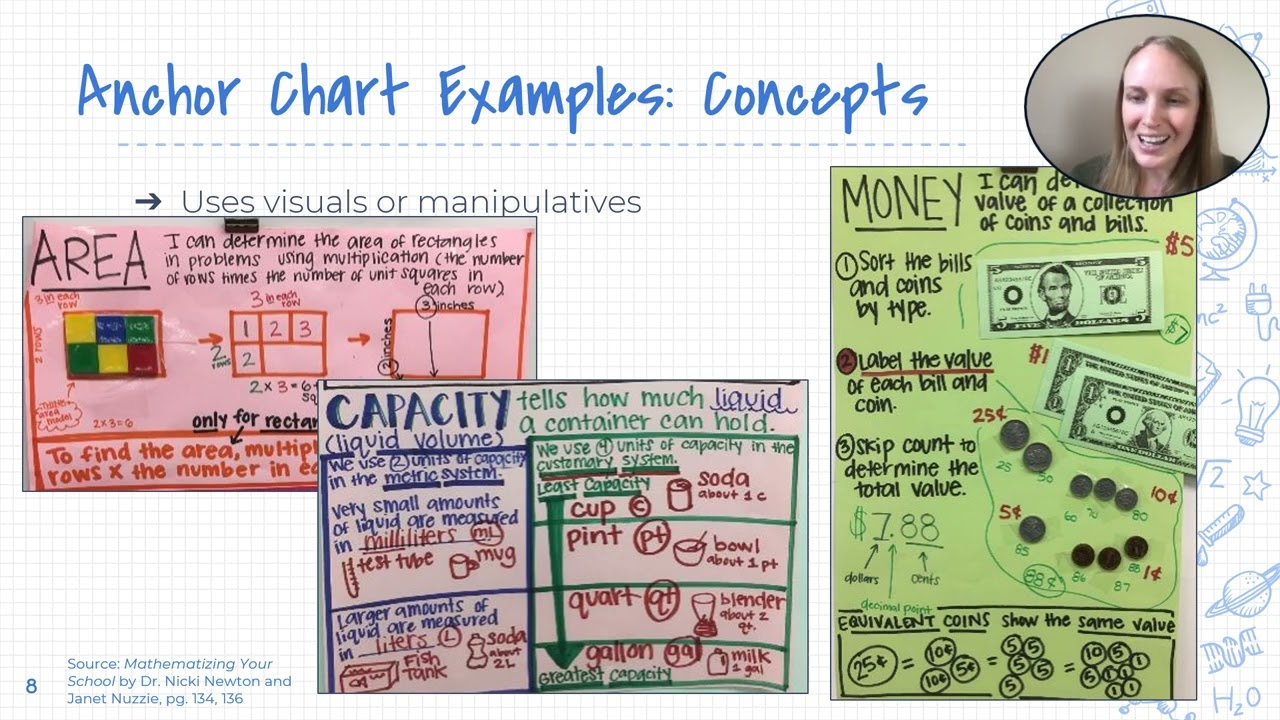 Anchor Chart Examples: Concepts
➔ Uses visuals or manipulatives
AREA
I can determine the area of rectangles
in problems using multiplication (the number
of rows times the number of unit squares in
each row)
3 in each
row
2 rows
3 in each
row
1 2 3
2
2
rows
3 inches
2 inches
2 x 3 = 6
sq
area
model
2x3=6
only for rectan
To find the area, multipl
rows x the number in ea
CAPACITY
(liquid volume)
tells how much liquid
a container can hold.
We use 2 units of capacity
in the metric system.
Very small amounts
of liquid are measured
in milliliters mL
test tube
mug
Larger amounts of
liquid are measured
in liters L
Fish
Tank
soda
about
2L
We use 4 units of capacity in the
customary system.
Least Capacity
cup c
soda
about 1 c
pint pt
bowl
about 1 pt
quart qt
blender
about 2
qt.
gallon gal
milk
1 gal
Greatest capacity
MONEY
I can de
value of a collection
of coins and bills.
1 Sort the bills
and coins
by type.
$5
FIVE DOLLARS
$7
2 Label the value
of each bill and
coin.
$1
THE UNITED STATES OF AMERICA
25¢
25
50
3 Skip count to
determine the
total value.
10¢
60 70 80
5¢
85
1¢
86 87 88
88¢
$7.88
dollars
cents
decimal point
EQUIVALENT COINS show the same value
25¢ = 10¢ 10¢ 5¢ = 5 5 5 5 5 = 10 5 5 1 1 1 1 1
8
Source: Mathematizing Your
School by Dr. Nicki Newton and
Janet Nuzzie, pg. 134, 136
H₂O